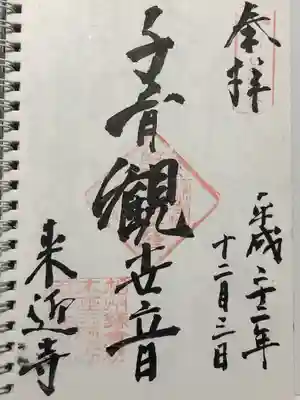 奉拝
平成二十二年
十二月三日
子育観世音
来迎寺